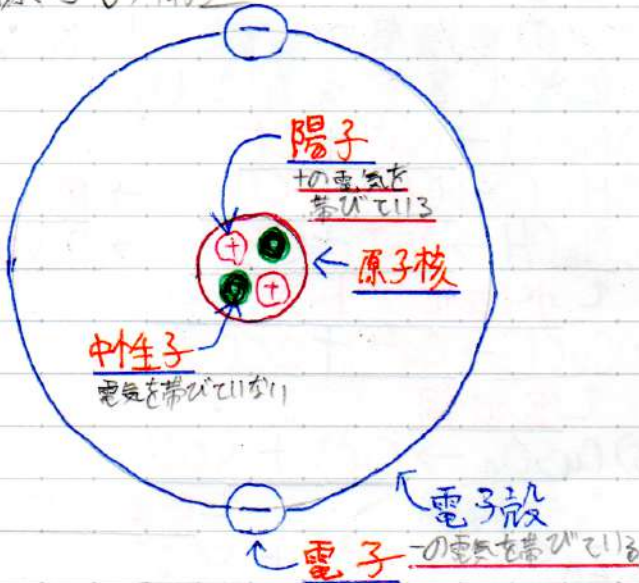 陽子
+の電気を
帯びている
+
+
原子核
中性子
電気を帯びていない
−
−
電子殻
電子 −の電気を帯びている